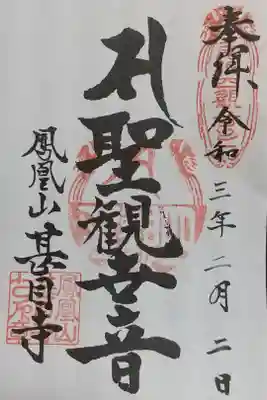 奉拝、令和三年二月二日
聖観世音
鳳凰山甚目寺